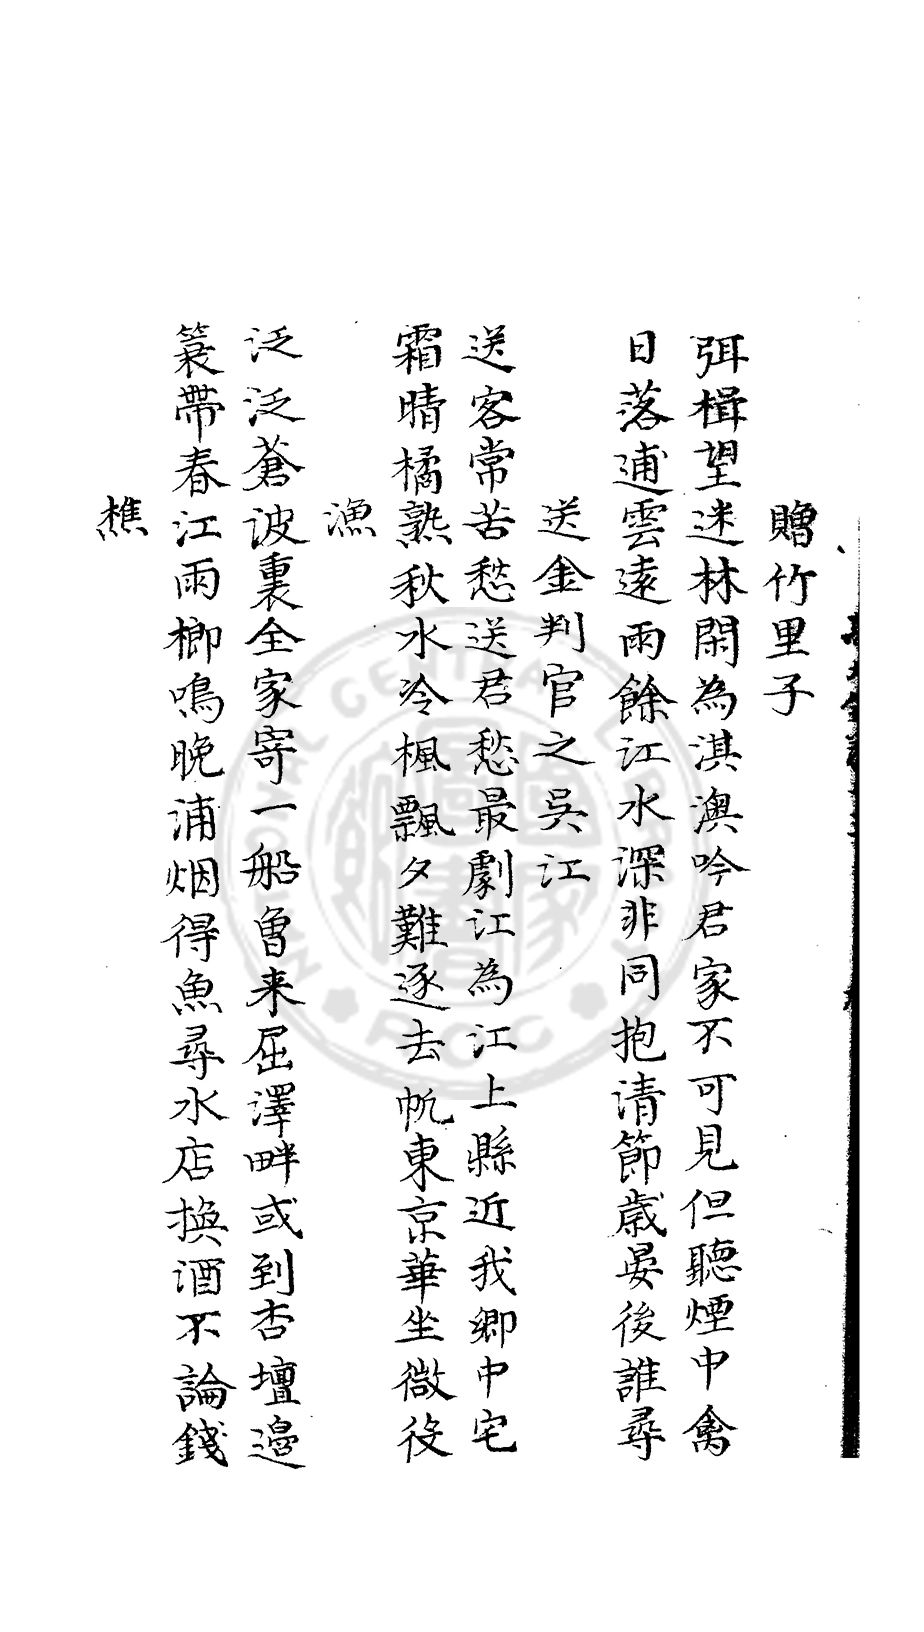 贈竹里子
弭楫望迷林閑為淇澳吟君家不可見但聽煙中禽
日落逋雲遠雨餘江水深非同抱清節歲晏後誰尋
送金判官之吳江
送客常苦愁送君愁最劇江為江上縣近我鄉中宅
霜晴橘熟秋水冷楓飄夕難逐去帆東京華坐微役
漁
泛泛蒼波裏全家寄一船曾来屈澤畔或到杏壇邉
簑帶春江雨榔鳴晚浦烟得魚尋水店換酒不論錢
樵
NATIONAL CENTRAL LIBRARY
ROC
國家圖書館